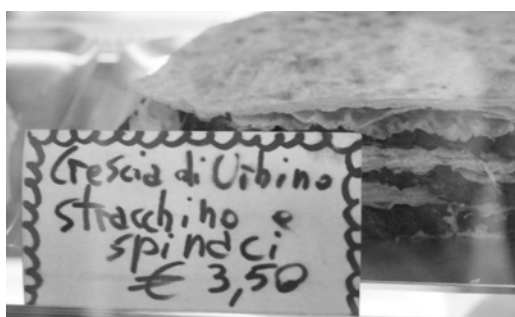 Crescia di Urbino
stracchino e
spinaci
€ 3,50